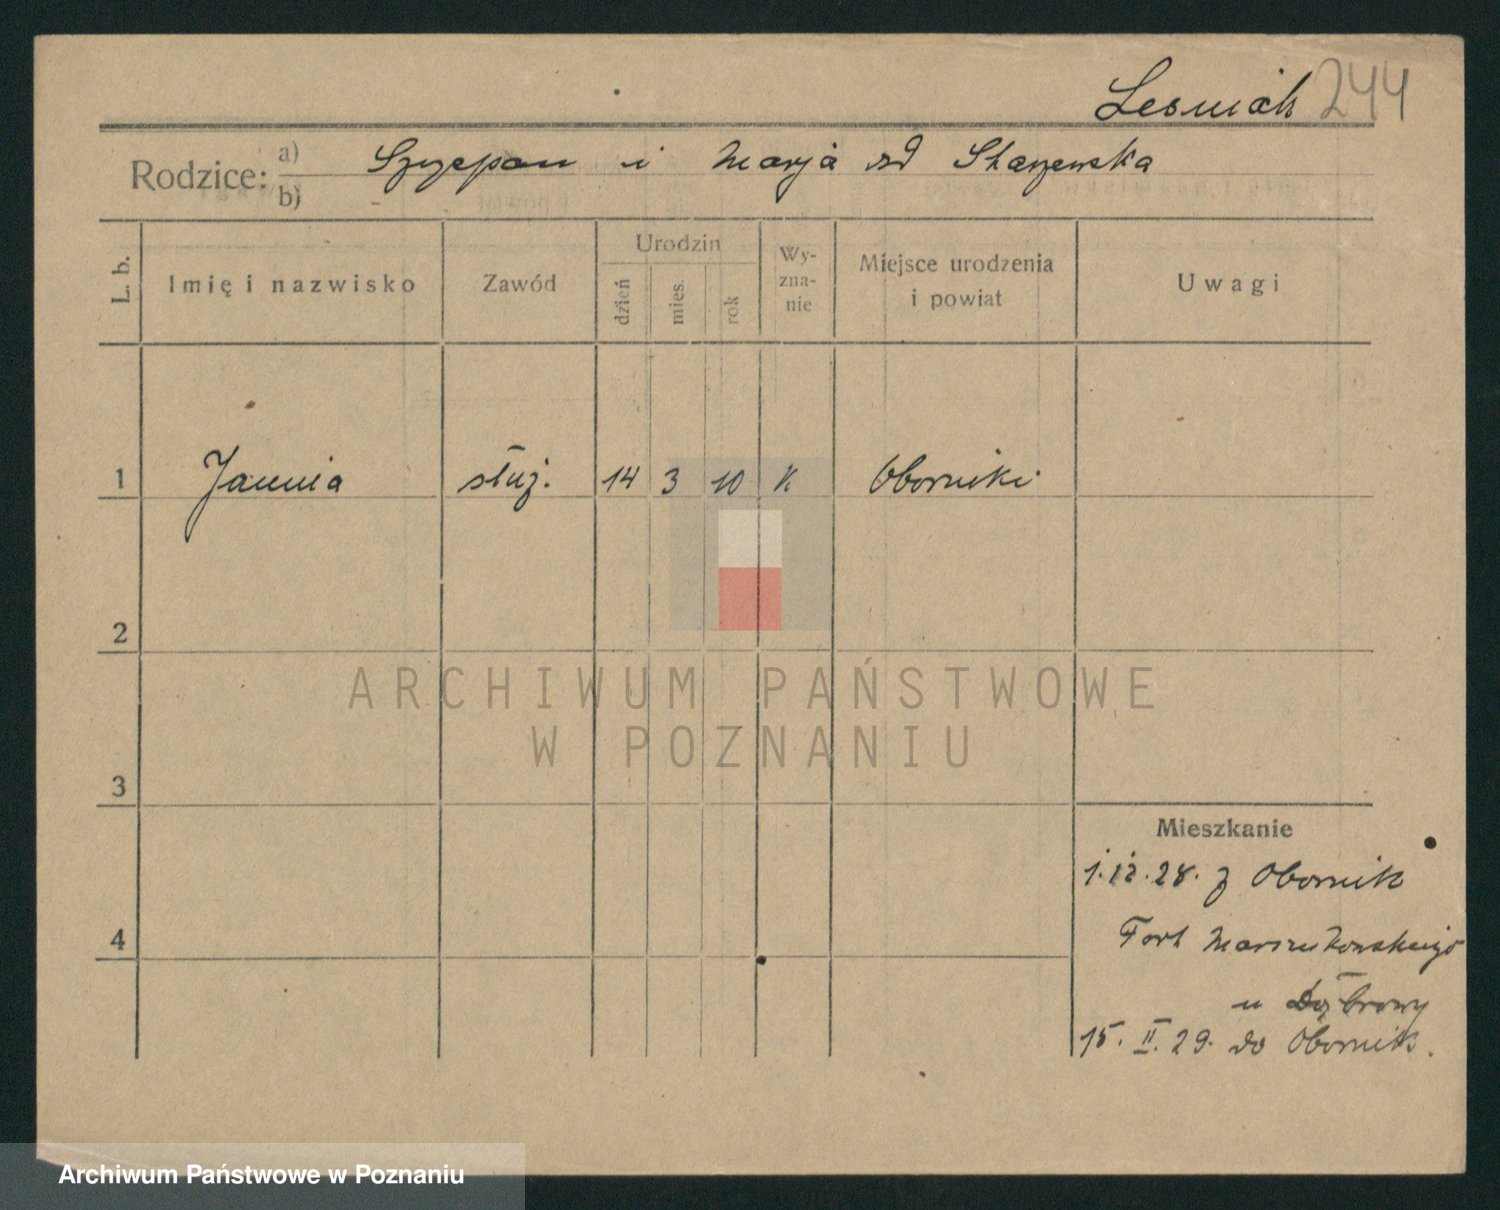 Lesniak 244
Rodzice: a) Szczepan i Marja zd Staszewska
b)
L. b.
Imię i nazwisko
Zawód
Urodzin
dzień
mies.
rok
Wy-
zna-
nie
Miejsce urodzenia
i powiat
Uwagi
1 Janina służ. 14 3 10 K Oborniki
2
ARCHIWUM PAŃSTWOWE
W POZNANIU
3
Mieszkanie
1.12.28. z Obornik
4
Fort
u Dąbrowy
15. II. 29. do Obornik.
Archiwum Państwowe w Poznaniu